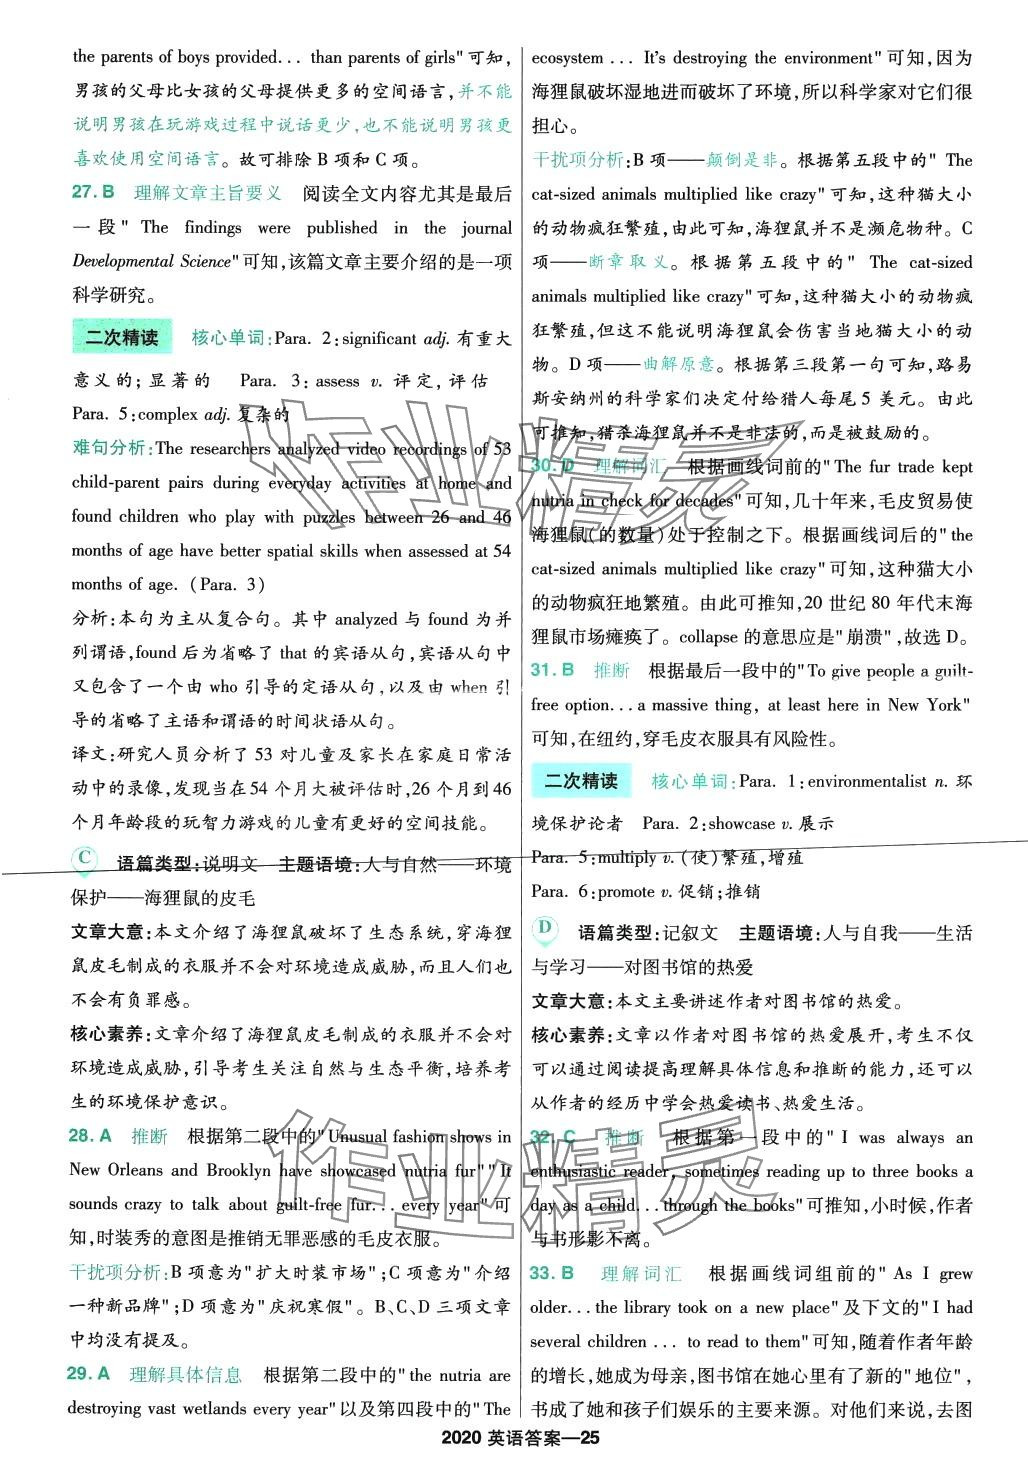 the parents of boys provided... than parents of girls"可知,
男孩的父母比女孩的父母提供更多的空间语言,并不能
说明男孩在玩游戏过程中说话更少,也不能说明男孩更
喜欢使用空间语言。故可排除 B 项和 C 项。
27. B 理解文章主旨要义 阅读全文内容尤其是最后
一段" The findings were published in the journal
Developmental Science"可知,该篇文章主要介绍的是一项
科学研究。
二次精读 核心单词:Para. 2:significant adj. 有重大
意义的;显著的 Para. 3: assess v. 评定,评估
Para. 5:complex adj. 复杂的
难句分析:The researchers analyzed video recordings of 53
child-parent pairs during everyday activities at home and
found children who play with puzzles between 26 and 46
months of age have better spatial skills when assessed at 54
months of age. (Para. 3)
分析:本句为主从复合句。其中 analyzed 与 found 为并
列谓语,found 后为省略了 that 的宾语从句,宾语从句中
又包含了一个由 who 引导的定语从句,以及由 when 引
导的省略了主语和谓语的时间状语从句。
译文:研究人员分析了 53 对儿童及家长在家庭日常活
动中的录像,发现当在 54 个月大被评估时,26 个月到 46
个月年龄段的玩智力游戏的儿童有更好的空间技能。
C 语篇类型:说明文 主题语境:人与自然——环境
保护——海狸鼠的皮毛
文章大意:本文介绍了海狸鼠破坏了生态系统,穿海狸
鼠皮毛制成的衣服并不会对环境造成威胁,而且人们也
不会有负罪感。
核心素养:文章介绍了海狸鼠皮毛制成的衣服并不会对
环境造成威胁,引导考生关注自然与生态平衡,培养考
生的环境保护意识。
28. A 推断 根据第二段中的"Unusual fashion shows in
New Orleans and Brooklyn have showcased nutria fur""It
sounds crazy to talk about guilt-free fur... every year"可
知,时装秀的意图是推销无罪恶感的毛皮衣服。
干扰项分析:B 项意为"扩大时装市场";C 项意为"介绍
一种新品牌";D 项意为"庆祝寒假"。B、C、D 三项文章
中均没有提及。
29. A 理解具体信息 根据第二段中的"the nutria are
destroying vast wetlands every year"以及第四段中的"The
ecosystem ... It's destroying the environment"可知,因为
海狸鼠破坏湿地进而破坏了环境,所以科学家对它们很
担心。
干扰项分析:B 项——颠倒是非。根据第五段中的" The
cat-sized animals multiplied like crazy"可知,这种猫大小
的动物疯狂繁殖,由此可知,海狸鼠并不是濒危物种。C
项——断章取义。根据第五段中的" The cat-sized
animals multiplied like crazy"可知,这种猫大小的动物疯
狂繁殖,但这不能说明海狸鼠会伤害当地猫大小的动
物。D 项——曲解原意。根据第三段第一句可知,路易
斯安纳州的科学家们决定付给猎人每尾 5 美元。由此
可推知,猎杀海狸鼠并不是非法的,而是被鼓励的。
30. D 理解词汇 根据画线词前的"The fur trade kept
nutria in check for decades"可知,几十年来,毛皮贸易使
海狸鼠(的数量)处于控制之下。根据画线词后的"the
cat-sized animals multiplied like crazy"可知,这种猫大小
的动物疯狂地繁殖。由此可推知,20 世纪 80 年代末海
狸鼠市场瘫痪了。collapse 的意思应是"崩溃",故选 D。
31. B 推断 根据最后一段中的"To give people a guilt-
free option... a massive thing, at least here in New York"
可知,在纽约,穿毛皮衣服具有风险性。
二次精读 核心单词:Para. 1:environmentalist n. 环
境保护论者 Para. 2:showcase v. 展示
Para. 5:multiply v. (使)繁殖,增殖
Para. 6:promote v. 促销;推销
D 语篇类型:记叙文 主题语境:人与自我——生活
与学习——对图书馆的热爱
文章大意:本文主要讲述作者对图书馆的热爱。
核心素养:文章以作者对图书馆的热爱展开,考生不仅
可以通过阅读提高理解具体信息和推断的能力,还可以
从作者的经历中学会热爱读书、热爱生活。
32. C 推断 根据第一段中的"I was always an
enthusiastic reader, sometimes reading up to three books a
day as a child... through the books"可推知,小时候,作者
与书形影不离。
33. B 理解词汇 根据画线词组前的" As I grew
older... the library took on a new place"及下文的"I had
several children ... to read to them"可知,随着作者年龄
的增长,她成为母亲,图书馆在她心里有了新的"地位",
书成了她和孩子们娱乐的主要来源。对他们来说,去图
2020 英语答案—25
作业精灵
作业精灵